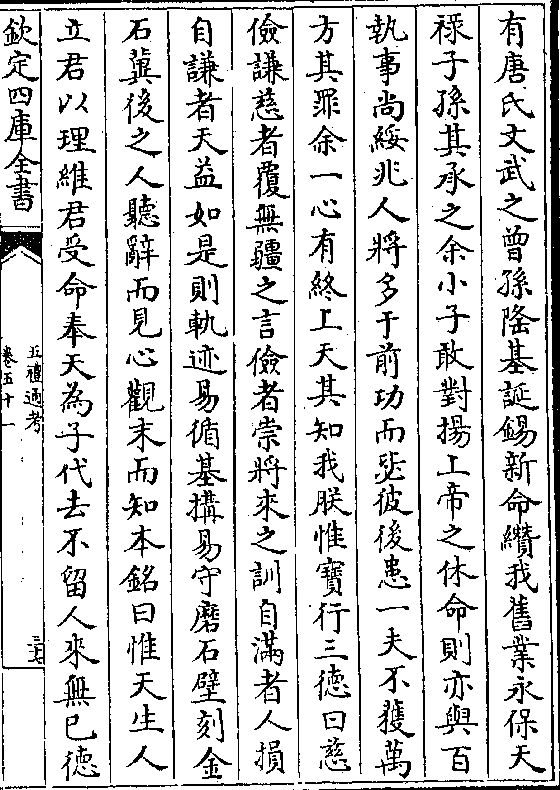 有唐氏文武之曾孫隆基誕錫新命纘我舊業永保天
祿子孫其承之余小子敢對揚上帝之休命則亦與百
執事尚綏兆人將多于前功而毖彼後患一夫不獲萬
方其罪余一心有終上天其知我朕惟寶行三德曰慈
儉謙慈者覆無疆之言儉者崇將來之訓自滿者人損
自謙者天益如是則軌迹易循基搆易守磨石壁刻金
石冀後之人聽辭而見心觀末而知本銘曰惟天生人
立君以理維君受命奉天為子代去不留人來無已德
欽定四庫全書
五禮通考
卷五十一